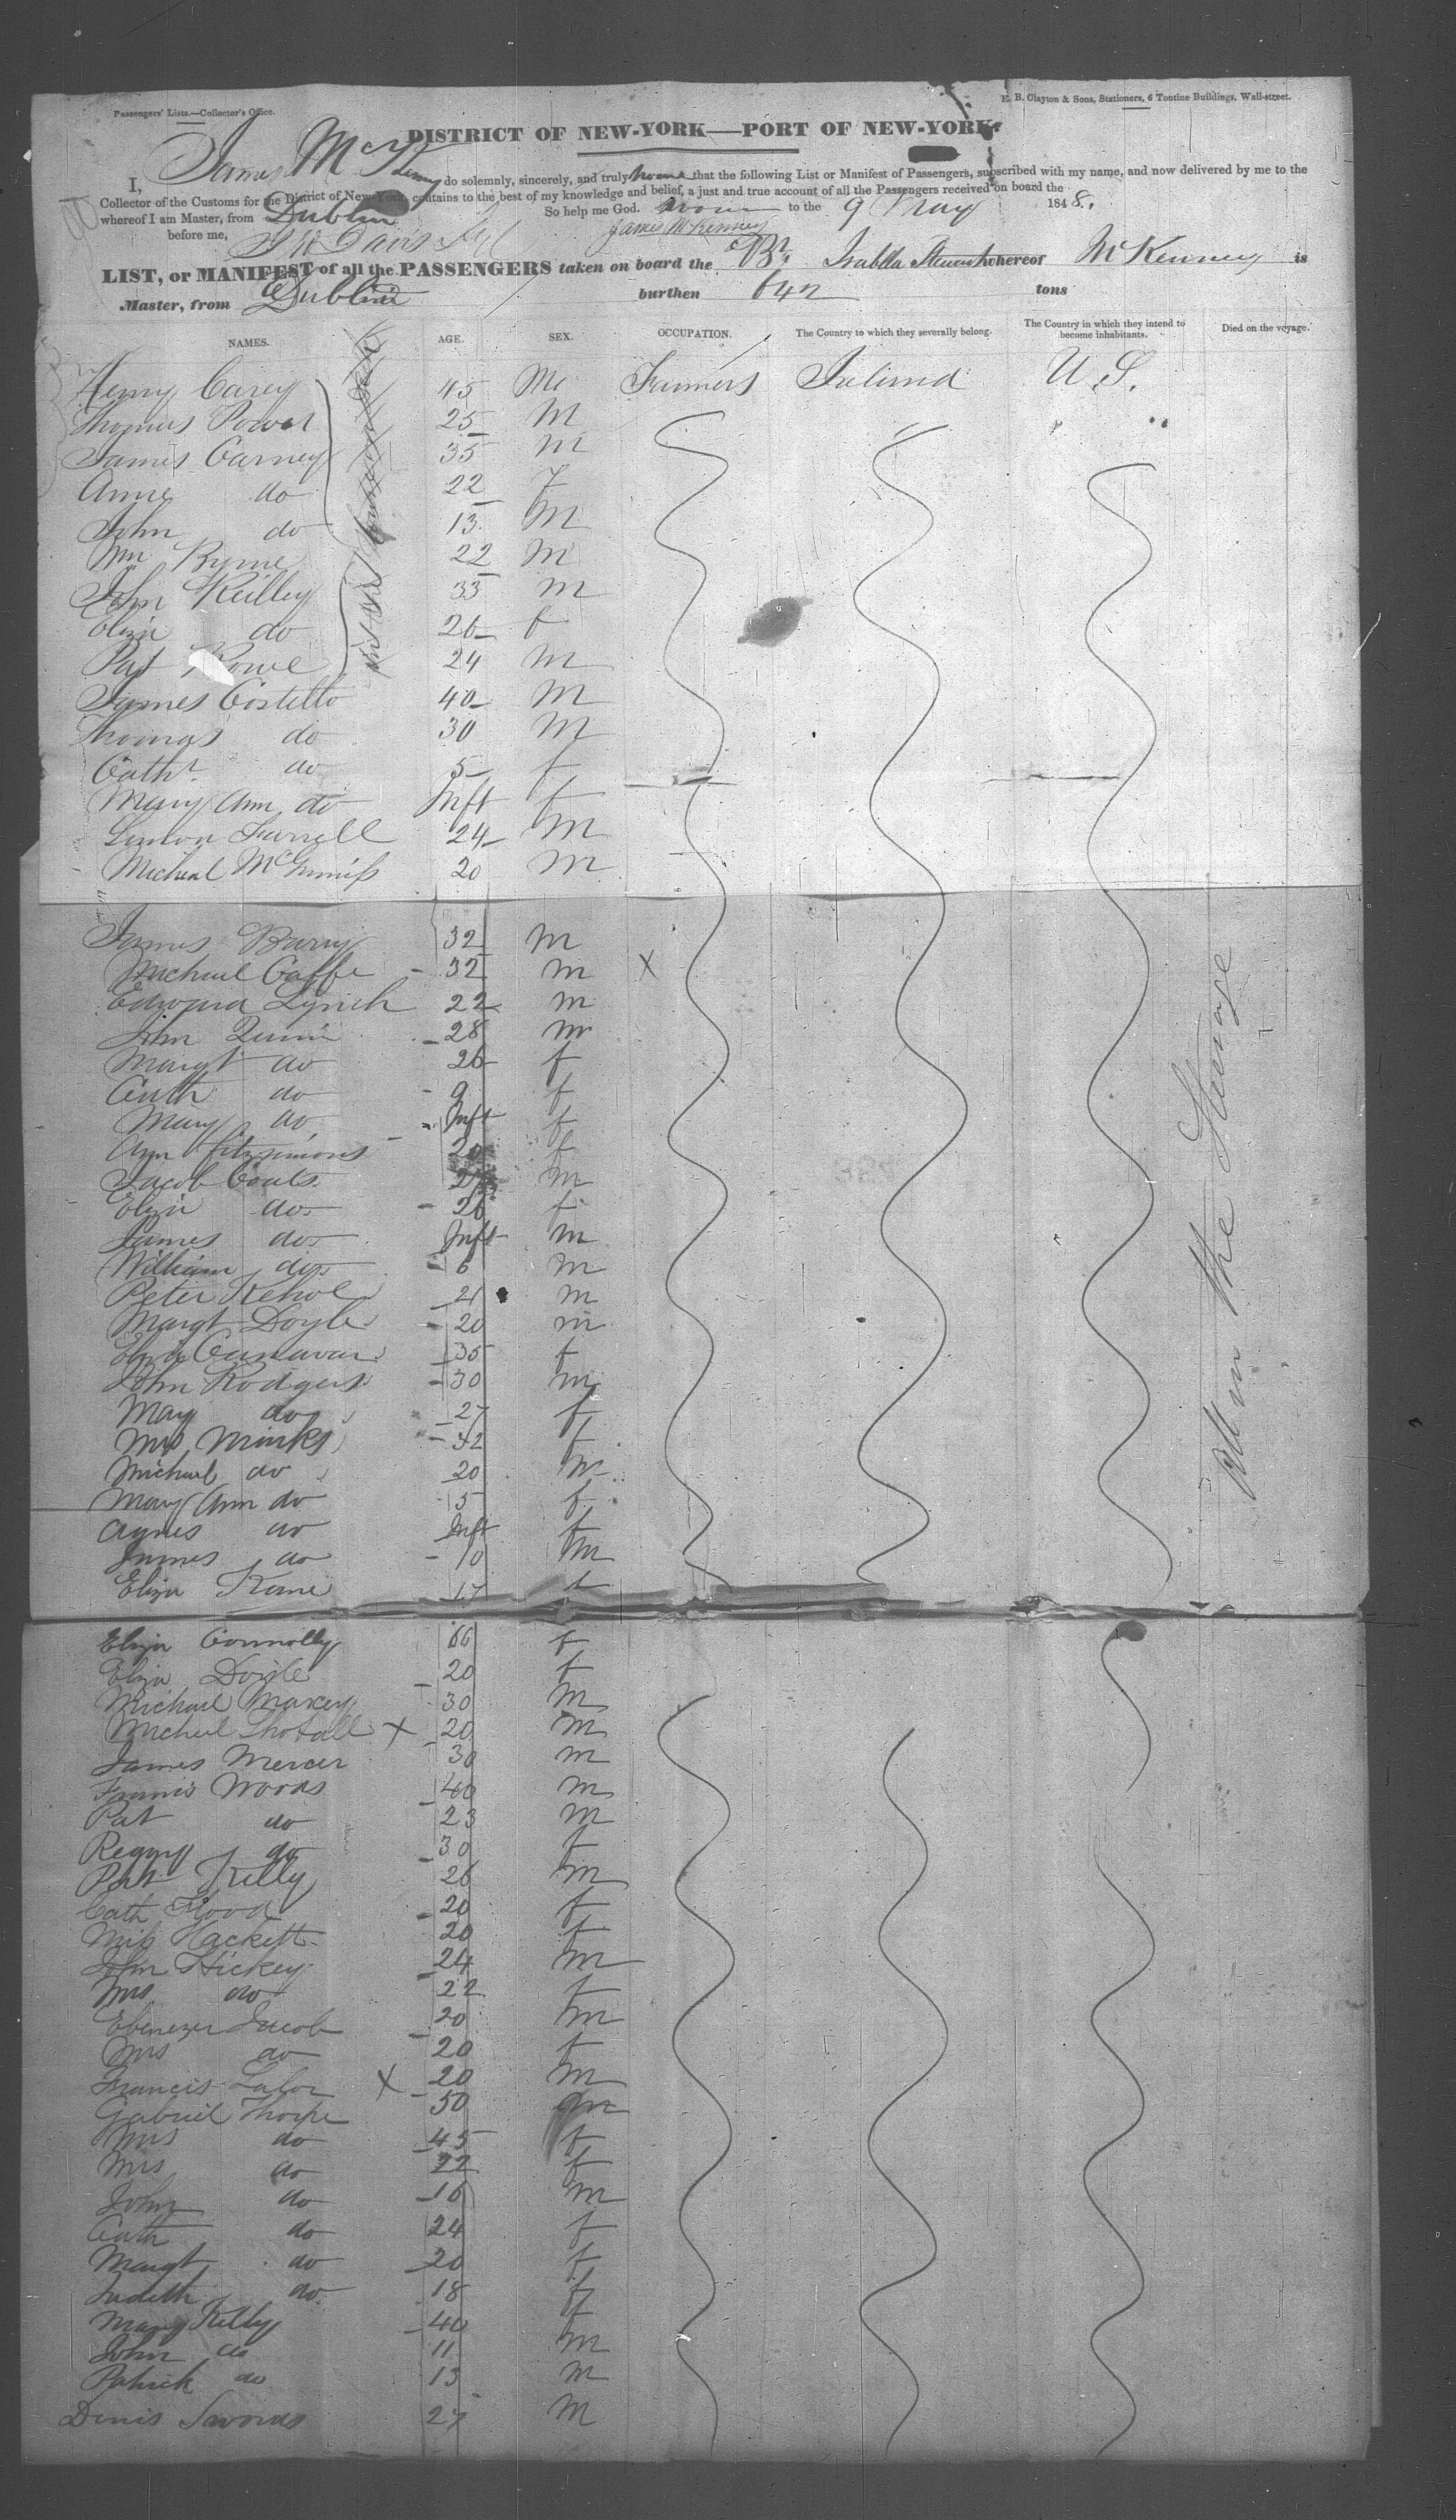 Passengers' Lists.—Collector's Office.
E. B. Clayton & Sons, Stationers, 6 Tontine Buildings, Wall-street.
DISTRICT OF NEW-YORK—PORT OF NEW-YORK.
I, James McKenny do solemnly, sincerely, and truly swear that the following List or Manifest of Passengers, subscribed with my name, and now delivered by me to the
Collector of the Customs for the District of New-York, contains to the best of my knowledge and belief, a just and true account of all the Passengers received on board the
whereof I am Master, from Dublin So help me God. sworn to the 9 May 1848.
before me, James McKenney
LIST, or MANIFEST of all the PASSENGERS taken on board the Br. Isabella Stewart whereof McKenney is
Master, from Dublin burthen 642 tons
NAMES. AGE. SEX. OCCUPATION. The Country to which they severally belong. The Country in which they intend to become inhabitants. Died on the voyage.
Henry Carey 45 M Farmers Ireland U.S.
Thomas Power 25 M
James Carney 35 M
Anne do 22 F
John do 13 M
Wm Byrne 22 M
John Reilley 33 M
Eliza do 26 f
Pat Rowe 24 M
James Costello 40 M
Thomas do 30 M
Cathr. do 5 f
Mary Ann do Inft f
Simon Farrell 24 M
Micheal McGinniss 20 M
James Barry 32 M
Micheal Gaffe 32 M X
Edward Lynch 22 M
John Quinn 28 M
Margt do 26 f
Cath do 9 f
Mary do Inft f
Ann Fitzsimons 20 f
Jacob Coats m
Eliza do 26 f
James do Inft m
William do 6 m
Peter Kehoe 21 m
Margt Doyle 20 m
Eliza Canavan 35 f
John Rodgers 30 m
May do 27 f
Mrs Minks 32 f
Michael do 20 M
Mary Ann do 5 f
Agnes do Inft f
James do 10 M
Eliza Kane 17 f
All in the Steerage
Eliza Connolly 66 f
Eliza Doyle 20 f
Michael Maxey 30 M
Micheal X 20 M
James Mercer 30 M
Francis Woods 40 M
Pat do 23 M
Peggy do 30 f
Pat Kelly 26 M
Cath Flood 20 f
Miss Hackett 20 f
John Hickey 24 M
Mrs do 22 f
Ebenezer Jacob 20 M
Mrs do 20 f
Francis Lalor X 20 M
Gabriel Thorpe 50 m
Mrs do 45 f
Mrs do 22 f
John do 16 M
Cath do 24 f
Margt do 20 f
Judith do 18 f
Mary Kelly 40 f
John do 11 M
Patrick do 13 M
Denis Swords 27 M